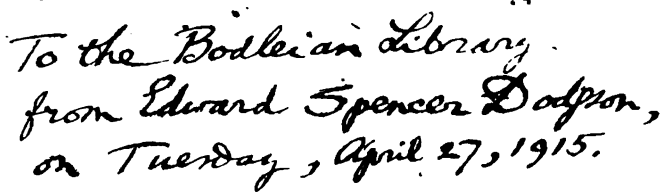 To the Bodleian Library.
from Edward Spencer Dodgson,
on Tuesday, April 27, 1915.